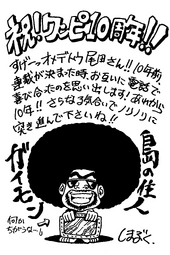 祝!ワンピ10周年!!
すげーっオメデトウ尾田さん!!10年前、
連載が決まった時、お互いに電話で
喜び合ったのを思い出します!あれから
10年!!さらなる気合いでノリノリに
突き進んで下さいね!!
島の住人
ガイモン
何か
ちがうなー!
しまぶく。